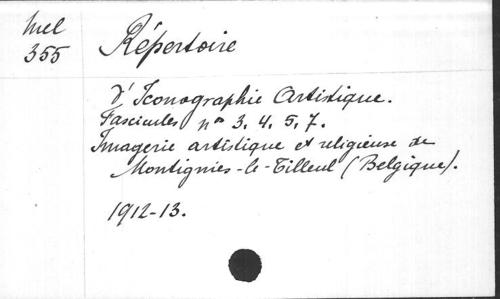 Mel
355
Répertoire
d'Iconographie Artistique.
Fascicules nos 3, 4, 5, 7.
Imagerie artistique et religieuse de
Montignies-le-Tilleul (Belgique).
1912-13.